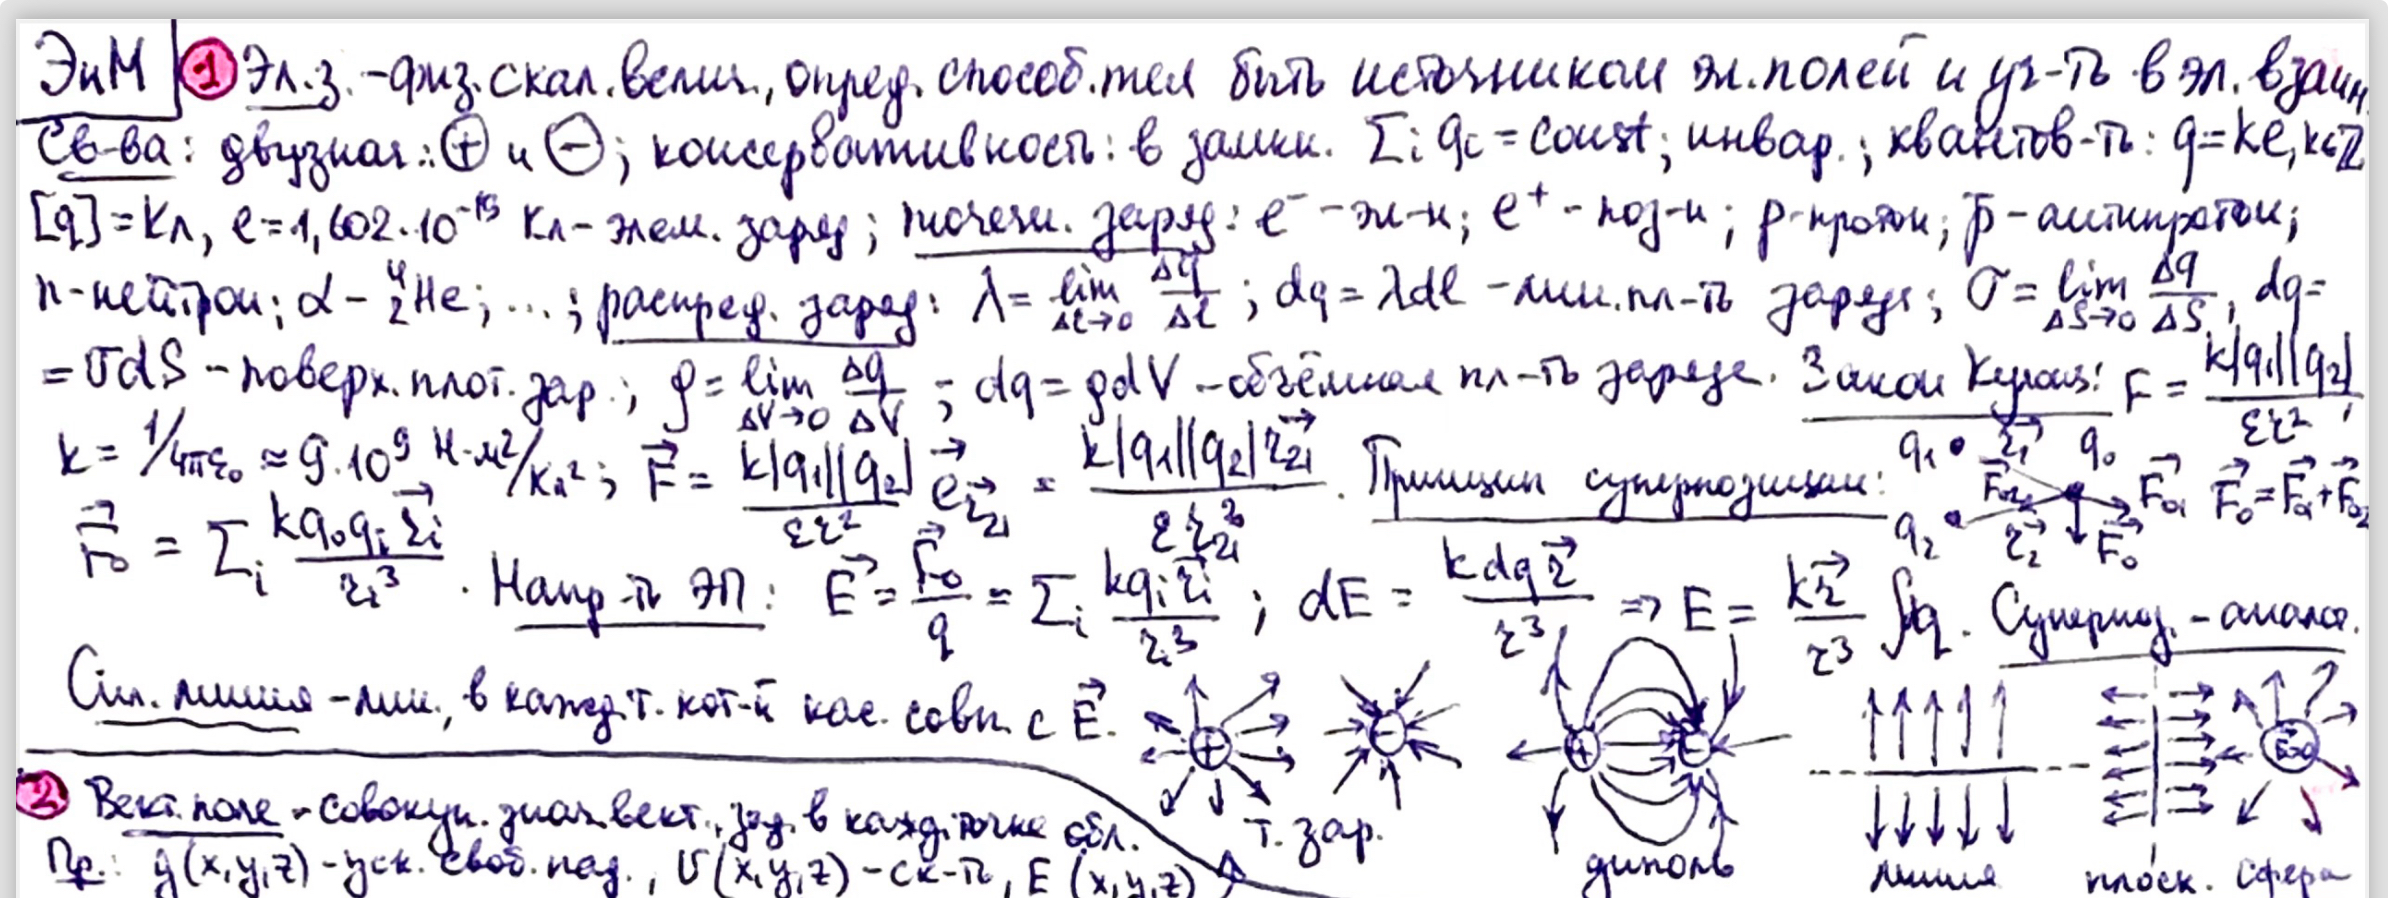 ЭиМ ① Эл.з. – физ. скал. велич., опред. способ. тел быть источником эл. полей и уч-ть в эл. взаим.
Св-ва: двузнач.: ⊕ и ⊖; консервативность: в замкн. Σᵢ qᵢ = const; инвар.; квантов-ть: q = ke, k∈Z
[q] = Кл, e = 1,602·10⁻¹⁹ Кл – элем. заряд; точечн. заряд: e⁻ – эл-н; e⁺ – поз-н; p – протон; p̄ – антипротон;
n – нейтрон; α – ⁴₂He; ...; распред. заряд: λ = lim_{Δl→0} Δq/Δl; dq = λdl – лин. пл-ть заряда; σ = lim_{ΔS→0} Δq/ΔS, dq =
= σdS – поверх. плот. зар.; ρ = lim_{ΔV→0} Δq/ΔV; dq = ρdV – объёмная пл-ть заряда. Закон Кулона: F = k|q₁||q₂|/εr²,
k = 1/4πε₀ ≈ 9·10⁹ Н·м²/Кл²; F⃗ = k|q₁||q₂|/εr² e⃗_{r⃗₂₁} = k|q₁||q₂|r⃗₂₁/εr₂₁³. Принцип суперпозиции: q₁ r⃗₁ q₀ F⃗₀₂ F⃗₀₁ q₂ r⃗₂ F⃗₀ F⃗₀ = F⃗₀₁ + F⃗₀₂
F⃗₀ = Σᵢ kq₀qᵢr⃗ᵢ/rᵢ³. Напр-ть ЭП: E⃗ = F⃗₀/q = Σᵢ kqᵢr⃗ᵢ/rᵢ³; dE = kdqr⃗/r³ ⇒ E = kr⃗/r³ ∫dq. Суперпоз. – аналог.
Сил. линия – лин., в кажд. т. кот-й кас. совп. с E⃗.
+ − т. зар. + − диполь линия плоск. сфера
② Вект. поле – совокуп. знач. вект., зад. в кажд. точке обл.
Пр.: g(x,y,z) – уск. своб. пад., υ(x,y,z) – ск-ть, E(x,y,z)